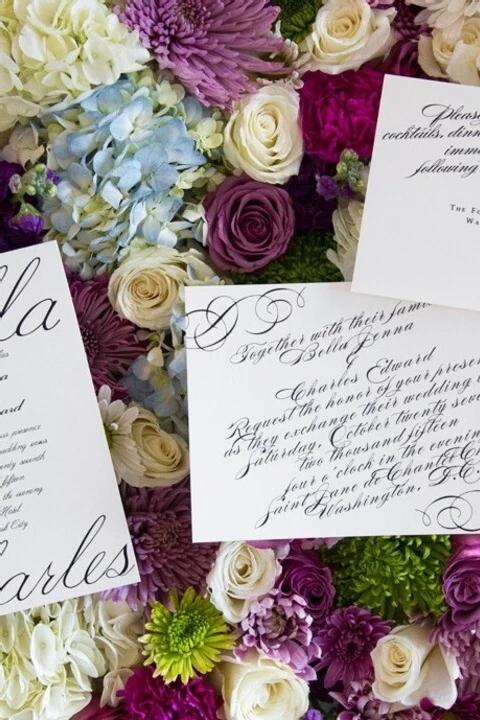 Please
cocktails, dinn
imme
following
The Fo
Wa
Together with their fami
Bella Jenna
Charles Edward
Request the honor of your presen
as they exchange their wedding v
Saturday, October twenty seve
two thousand fifteen
four o'clock in the evenin
Saint Jane de Chantel Ch
Washington, D.C.
lla
ward
presence
wedding vows
twenty seventh
fifteen
the evening
Hotel
rk City
arles